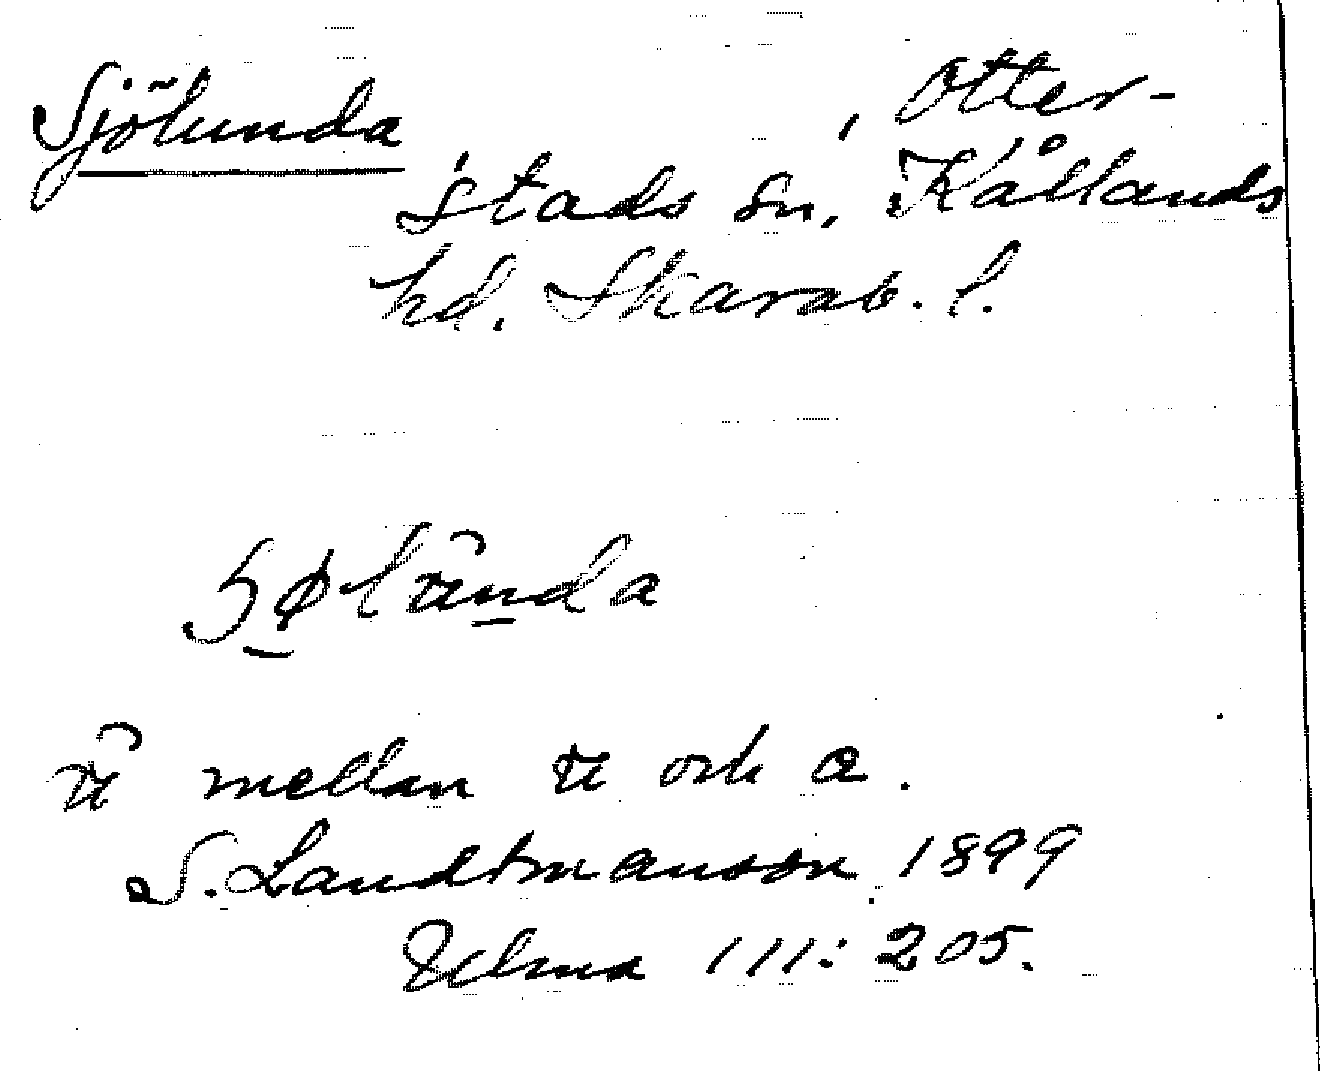 Sjölunda, Otter-
stads sn, Kållands
hd. Skarab. l.
mellan och a.
S. Landtmanson 1899
111: 205.